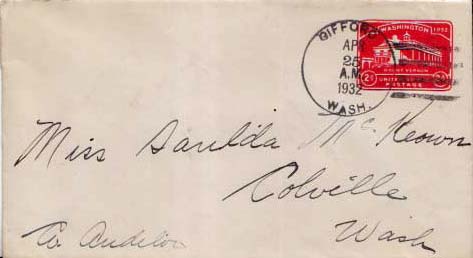 GIFFORD
APR
25
A.M.
1932
WASH.
WASHINGTON 1932
MOUNT VERNON
2¢ UNITED STATES 2¢
POSTAGE
Miss Sarilda McKeown
Colville
Wash
Co. Auditor